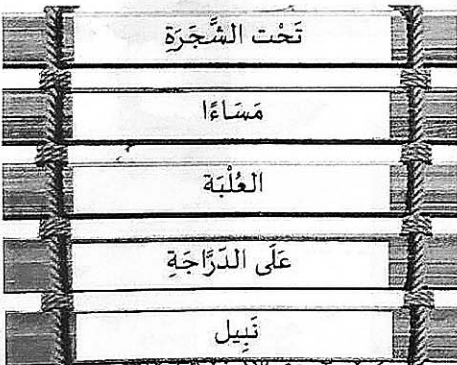 تَحْت الشَّجَرَةِ
مَسَاءًا
العُلْبَة
عَلَى الدَرَّاجَةِ
نَبِيل